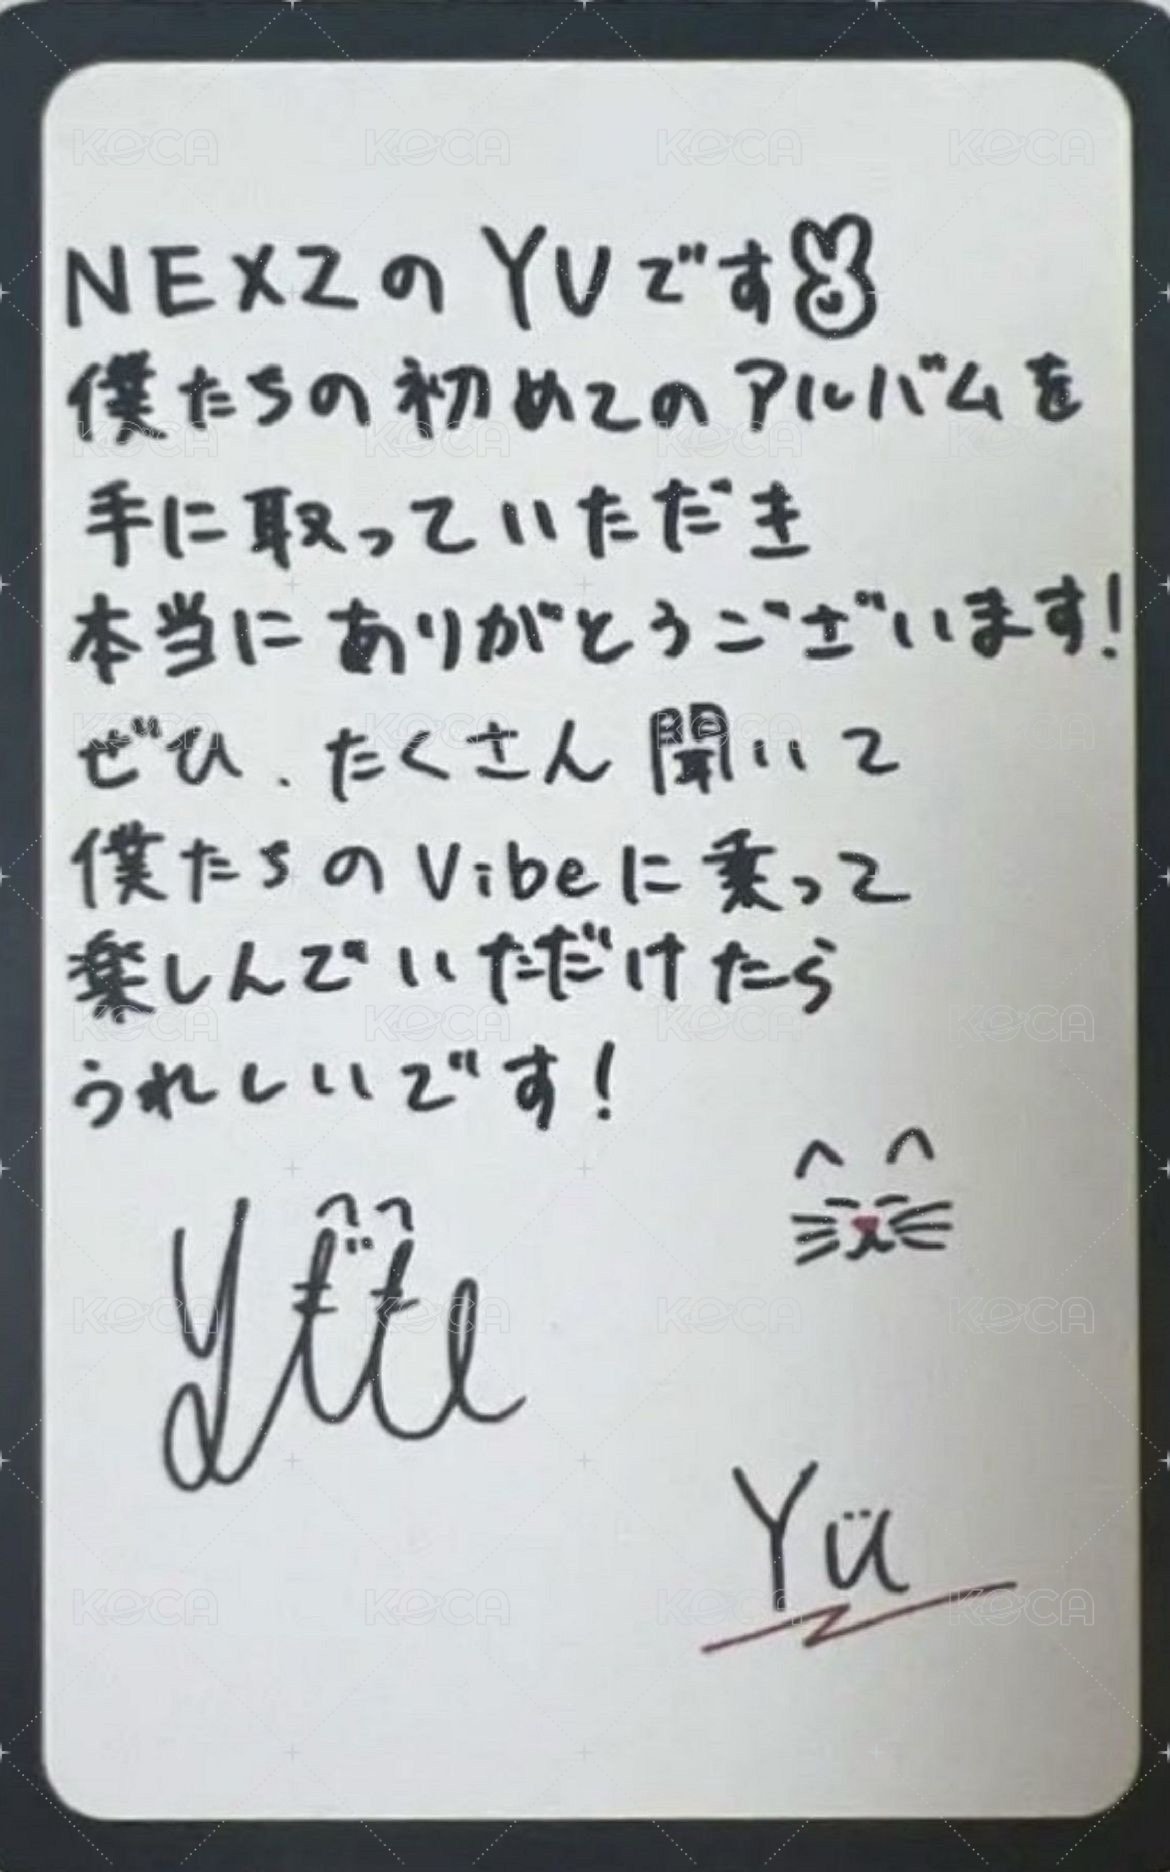 NEXZのYUです
僕たちの初めてのアルバムを
手に取っていただき
本当にありがとうございます!
ぜひ、たくさん聞いて
僕たちのVibeに乗って
楽しんでいただけたら
うれしいです!
Yü
KOCA